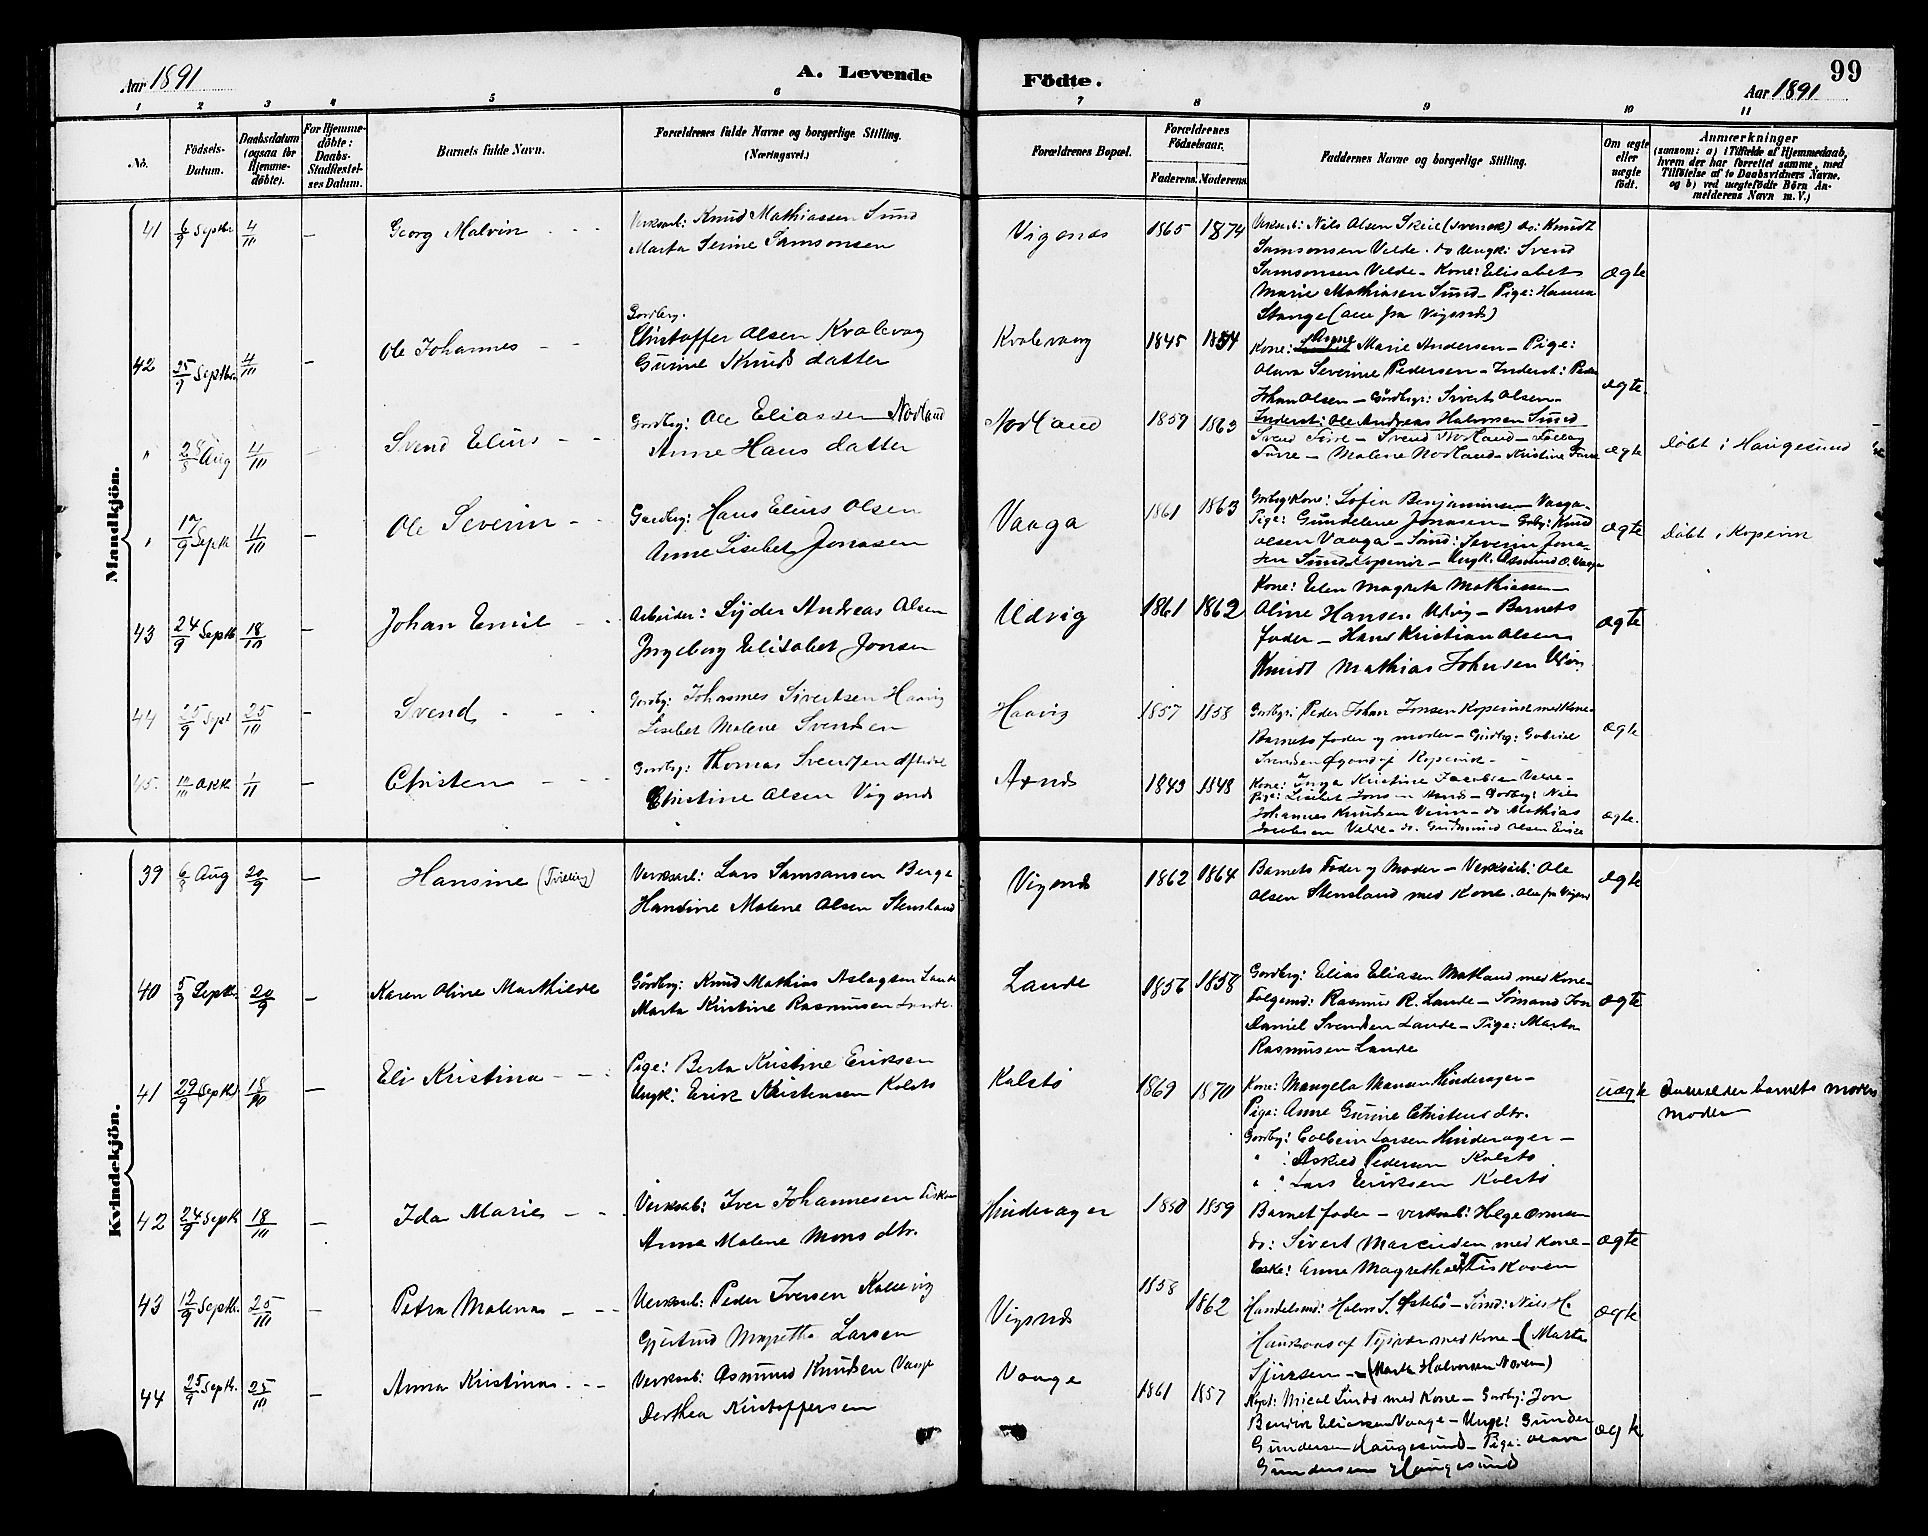 99
Aar 1891
A. Levende
Födte.
Aar 1891
1 2 3 4 5 6 7 8 9 10 11
No.
Födsels-
Datum.
Daabsdatum
(ogsaa for
Hjemme-
döbte).
For Hjemme-
döbte:
Daabs-
Stadfæstel-
ses Datum.
Barnets fulde Navn.
Forældrenes fulde Navne og borgerlige Stilling.
(Næringsvei.)
Forældrenes Bopæl.
Forældrenes
Födselsaar.
Faderens. Moderens.
Faddernes Navne og borgerlige Stilling.
Om ægte
eller
uægte
født.
Anmærkninger
(saasom: a) i Tilfælde af Hjemmedaab,
hvem der har forrettet samme, med
Tilföielse af to Daabsvidners Navne.
og b) ved uægtefödte Börn An-
melderens Navn m. V.)
Mandkjön.
41 6/9 Septbr 4/10 — Georg Malvin
Verksarb: Knud Mathiassen Sund
Marta Serine Samsonsen
Vigsnes 1865 1874
Verksarb: Niels Olsen Skeie (svensk) do: Knudt
Samsonsen Velde. do Ungk: Svend
Samsonsen Velde — Kone: Elisabet
Marie Mathiasen Sund — Pige: Hanna
Stange (alle fra Vigsnes)
ægte
42 25/9 Septbr 4/10 — Ole Johannes
Gordbrg.
Christoffer Olsen Kvalevaag
Gurine Knuds datter
Kvalevaag 1845 1854
Kone: Marie Andersen — Pige:
Olava Severine Pedersen — Inderst: Peder
Johan Olsen — Gårdbgr: Sivert Olsen
Inderst: Ole Andreas Halvorsen Sund
ægte
" Aug 4/10 Svend Elius
Gordbg: Ole Eliassen Nordland
Anne Hans datter
Nordland 1859 1863
Svend Førre — Svend Nordland —
Førre — Malene Nordland — Kristine Førre
ægte
Döbt i Haugesund
" 17/9 Sept 11/10 — Ole Severin
Gordbg: Hans Elius Olsen
Anne Lisebet Jonasen
Vaaga 1861 1863
Gordbg: Kone: Sofia Benjaminsen Vaaga
Pige: Gundelene Jonasen — Gordbg: Knud
Olsen Vaaga — Sömd: Severin Jona-
sen Sund Kopervik — Ungk. Osmund O. Vaaga
ægte
Döbt i Kopervik
43 24/9 Septb 18/10 — Johan Emil
Arbeider: Sijder Andreas Olsen
Ingeborg Elisabet Jonsen
Udvig 1861 1862
Kone: Elen Magreta Mathiassen
Oline Hansen Utvig — Barnets
fader — Hans Kristian Olsen
Knudt Mathias Johnsen
ægte
44 25/9 Sept 25/10 — Svend
Gordbg: Johannes Sivertsen Haavig
Lisebet Malene Svendsen
Haavig 1857 1858
Gordbgr: Peder Johan Jonsen Kopervik med Kone
Barnets fader og moder — Gordbg: Gabriel
Svendsen
ægte
45. 12/10 Okt 1/11 — Christen
Gordbg: Thomas Svendsen
Christine Olsen Vigsnes
1843 1848
Kone: Inga Kristine Jacobsen Velde
Pige: Lisebet — Gordbg: Niels
Johannes Knudsen — do Mathias
Jacobsen Velde — do. Gudmund Olsen
ægte.
Kvindekjön.
39 6/8 Aug 20/9 — Hansine (Tvilling)
Verksarb: Lars Samsonsen Berge
Hansine Malene Olsen Stensland
Vigsnes 1862 1864
Barnets Fader og Moder — Verksarb: Ole
Olsen Stensland med Kone. Alle fra Vigsnes
ægte
40 5/9 Septb. 20/9 — Karen Oline Marthilde
Gårdbg: Knud Mathias Aslagsen Lande
Marta Kristine Rasmusen Lande.
Lande 1856 1858
Gordbg: Elias Eliasen Matland med Kone
Folgemd: Rasmus R. Lande — Sömand Jon
Daniel Svendsen Lande — Pige: Marta
Rasmusen Lande
ægte
41 29/9 Septb 18/10 — Eli Kristina
Pige: Berta Kristine Eriksen
Ungk: Erik Kristensen Kolstø
Kalstø 1869 1870
Kone: Mangela Hinderager
Pige: Anne Gurine Christensdtr.
Gordbg: Colbein Larsen Hinderager —
" : Askild Pedersen Kolstø
" : Lars Eriksen Kolstø
uægte
Anmelder barnets moders
moder
42 24/9 Septb 18/10 — Ida Marie
Verksab: Iver Johannesen
Anna Malene Monsdtr.
Hinderager 1850 1859
Barnets fader — verksab: Helge
do: Sivert med Kone —
Enke: Anne Magrethe
ægte
43 12/9 Septb. 25/10 — Petra Malena
Verksarb: Peder Iversen Kallevig
Gjertrud Magretha Larsen
Vigsnes 1858 1862
Handelsmd: Halvor S. — Sömd: Niels H.
med Kone — (Marta
Sjursen — (Marta Halvorsen
ægte
44 25/9 Septb. 25/10 — Anna Kristina
Verksab: Osmund Knudsen Vaage
Dorthea Kristoffersen
Vaage 1861 1857
Mical Lund med Kone — Gordbg: Jon
Bendik Eliassen Vaage — Ungk: Gunder
Gundersen Haugesund — Pige: Olava
Gundersen Haugesund
ægte